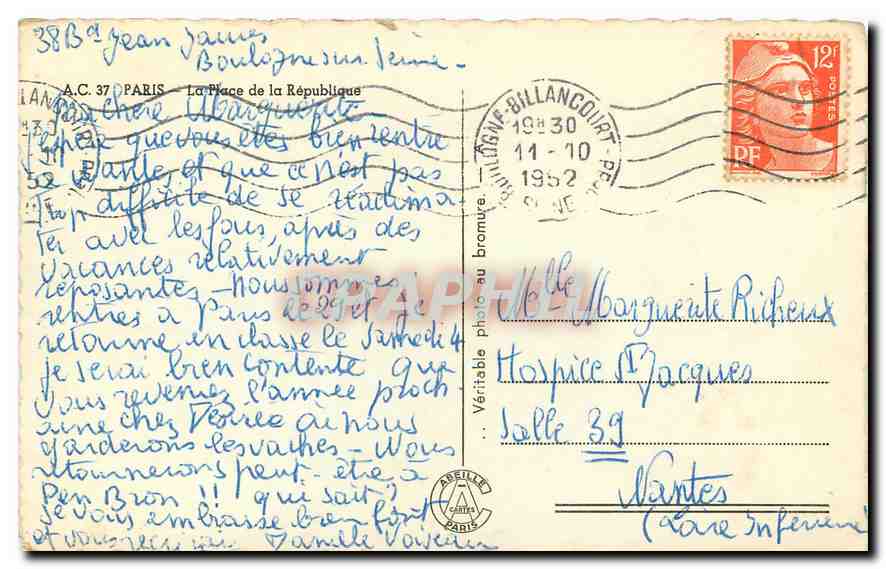 38 Bd Jean Jaurès
Boulogne sur Seine -
A.C. 37 PARIS - La Place de la République
Ma chère Marguerite
J'espère que vous êtes bien rentrée
à Nantes et que ce n'est pas
trop difficile de se réaclima
ter avec les fous, après des
vacances relativement
reposantes - nous sommes
rentrés à Paris le 29 et je
retourne en classe le Samedi 4
je serai bien contente que
vous reveniez l'année proch
aine chez Désirée où nous
garderons les vaches - Nous
retournerons peut-être à
Pen Bron !! qui sait ?
Je vous embrasse bien fort
et vous
Famille
BOULOGNE-BILLANCOURT
19H30
11-10
1952
SEINE
12F
POSTES
RF
PAPHIL
Véritable photo au bromure.
ABEILLE
CARTES
PARIS
Melle Marguerite Richeux
Hospice St Jacques
Salle 39
Nantes
(Loire Inférieure)